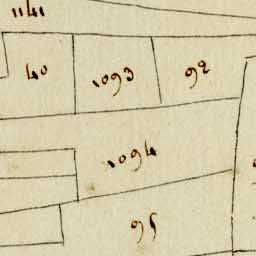 1141
40 1093 92
1094
95